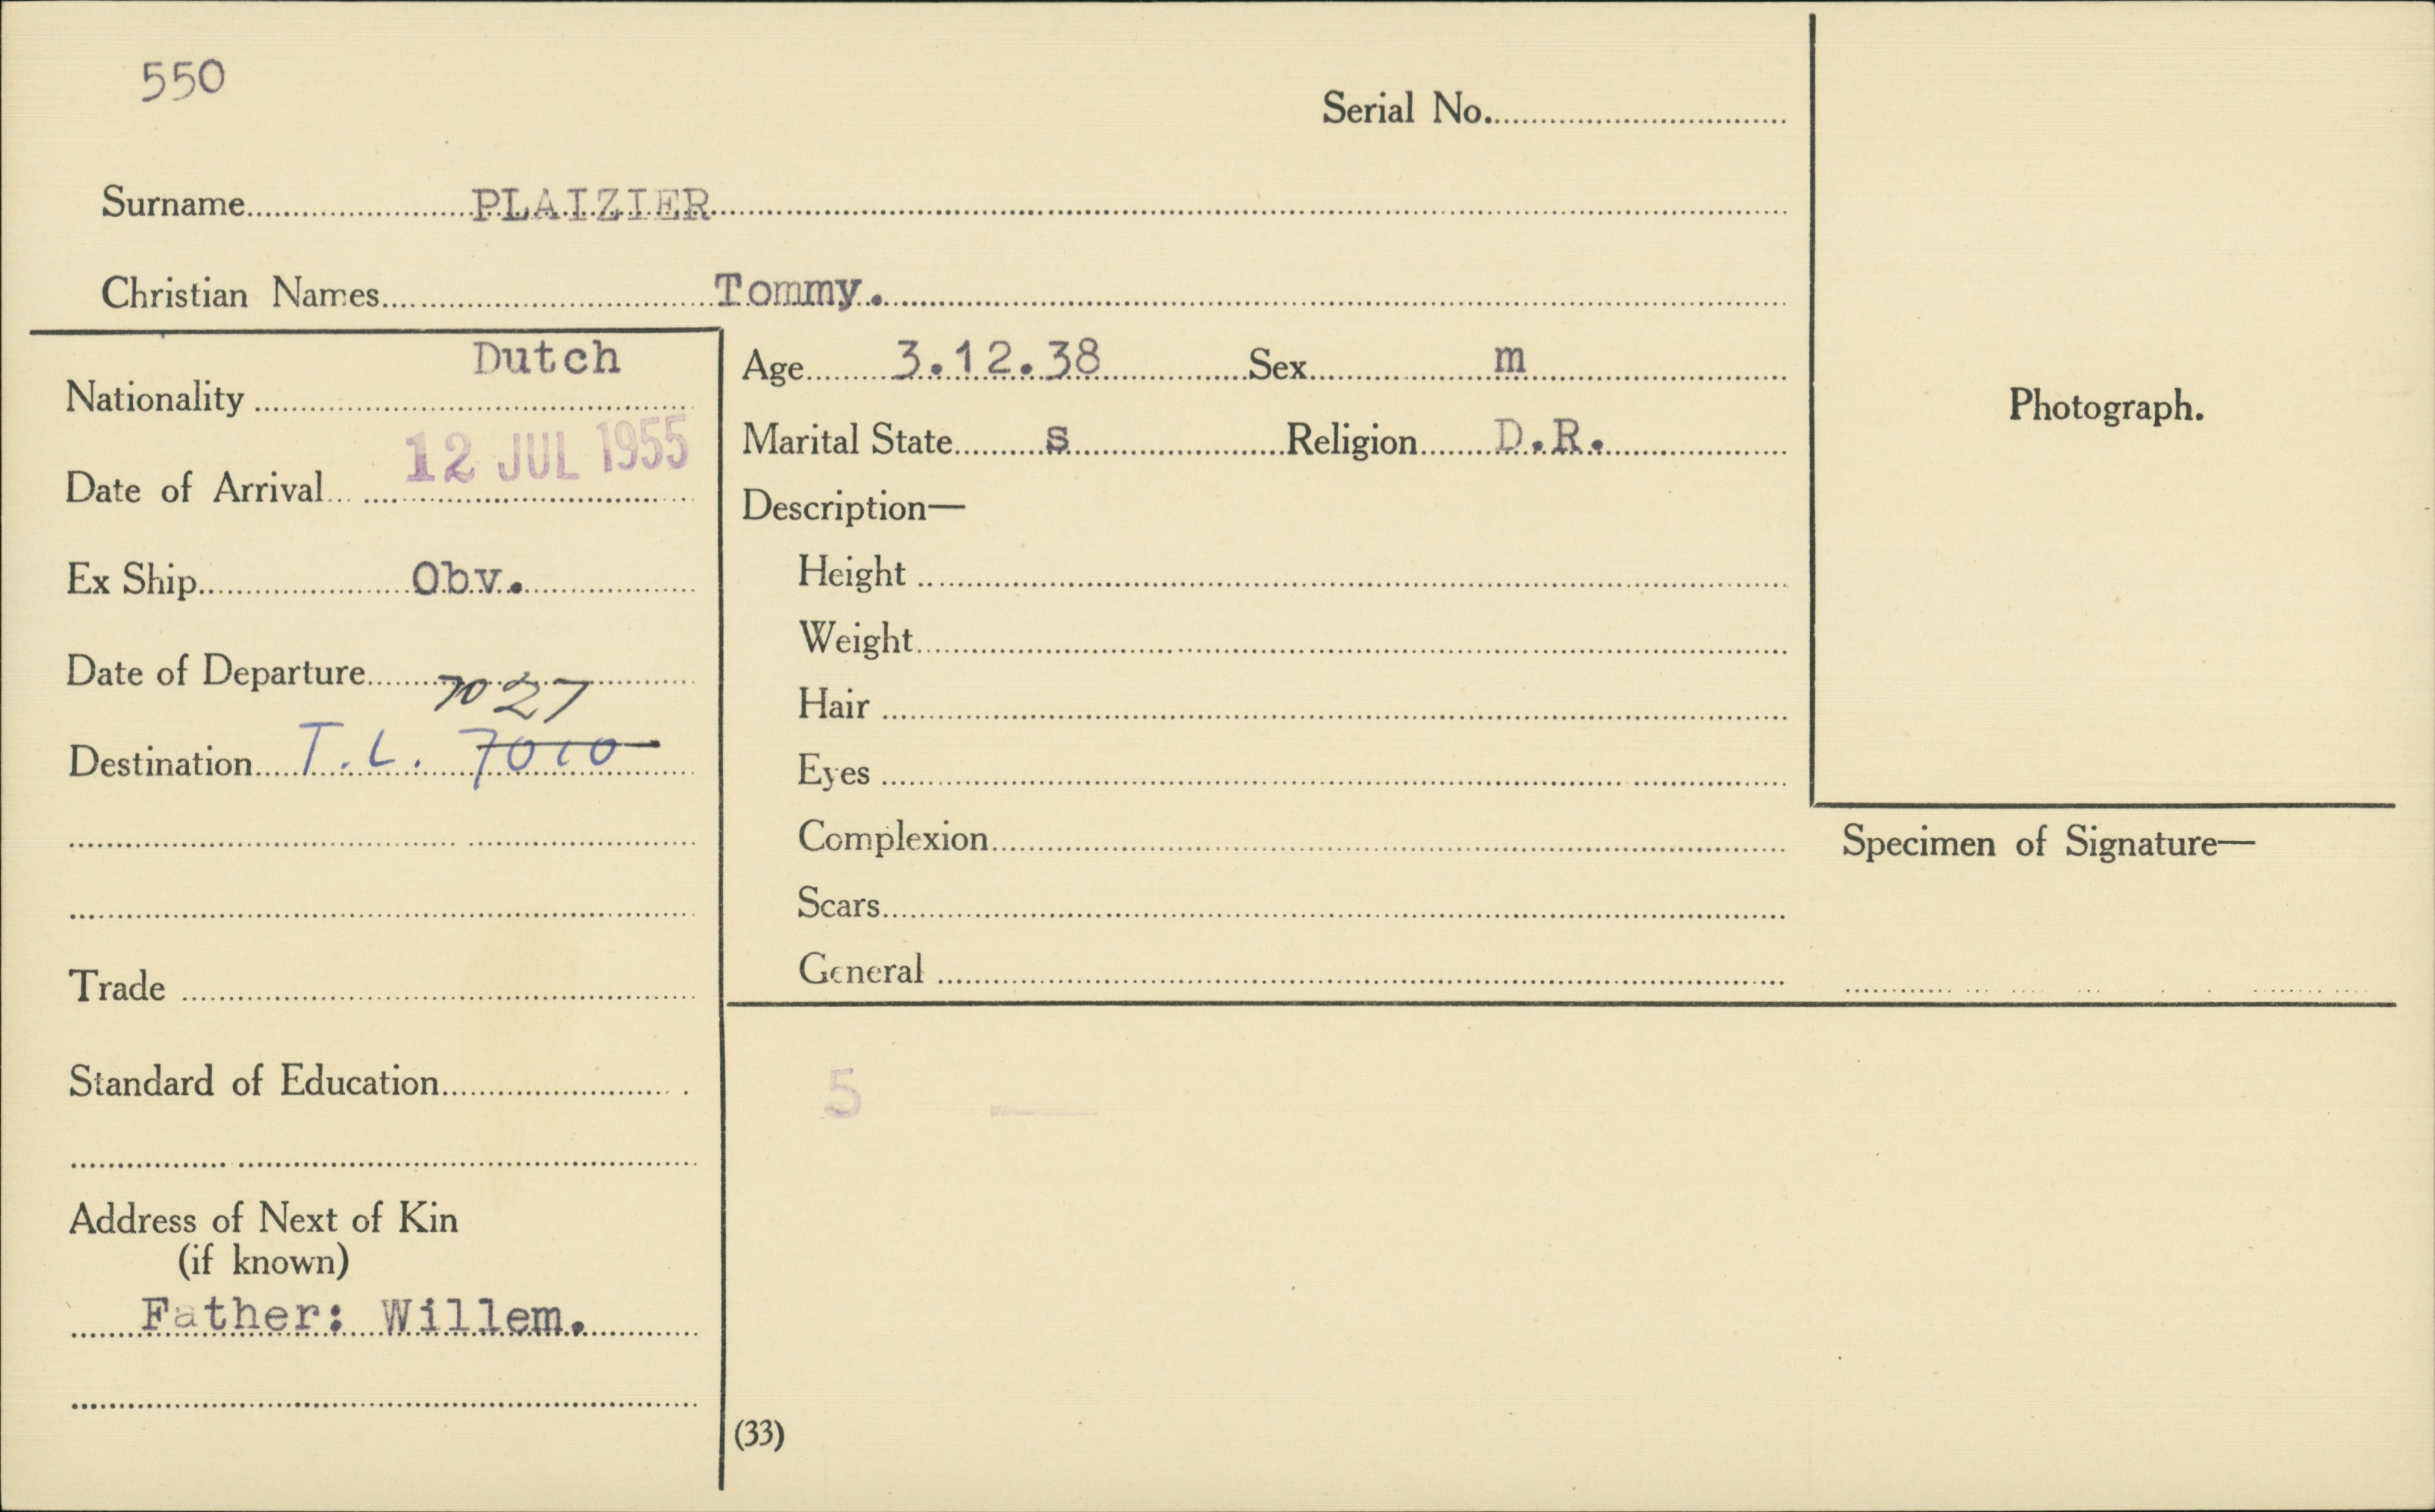 550
Serial No.
Surname PLAIZIER
Christian Names Tommy.
Nationality Dutch
Date of Arrival 12 JUL 1955
Ex Ship Obv.
Date of Departure
7027
Destination T.L. 7010
Trade
Standard of Education
Address of Next of Kin
(if known)
Father: Willem.
Age 3.12.38 Sex m
Marital State s Religion D.R.
Description—
Height
Weight
Hair
Eyes
Complexion
Scars
General
Photograph.
Specimen of Signature—
5 —
(33)